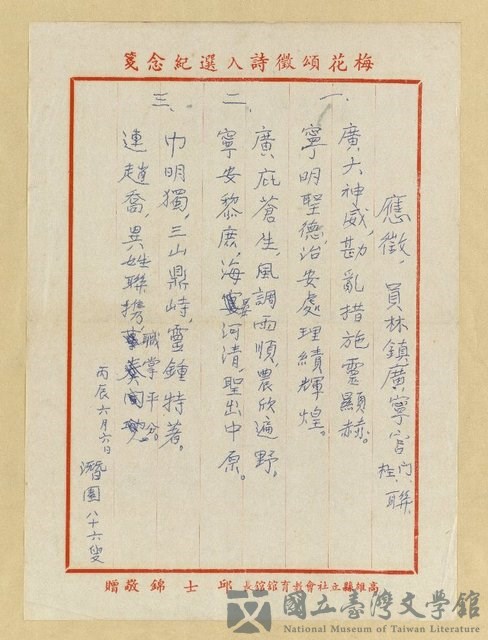 梅花頌徵詩入選紀念箋
應徵,員林鎮廣寧宮門柱聯
一、
廣大神威,勘亂措施靈顯赫。
寧明聖德,治安處理績輝煌。
二、
廣庇蒼生,風調雨順農欣遍野。
寧安黎庶,海晏河清,聖出中原。
三、
巾明獨,三山鼎峙,靈鍾特著。
連趙喬,異姓聯攜,職掌平分。
丙辰六月六日
潛園八十六叟
高雄縣立社會教育館館長 邱士錦敬贈
國立臺灣文學館
National Museum of Taiwan Literature